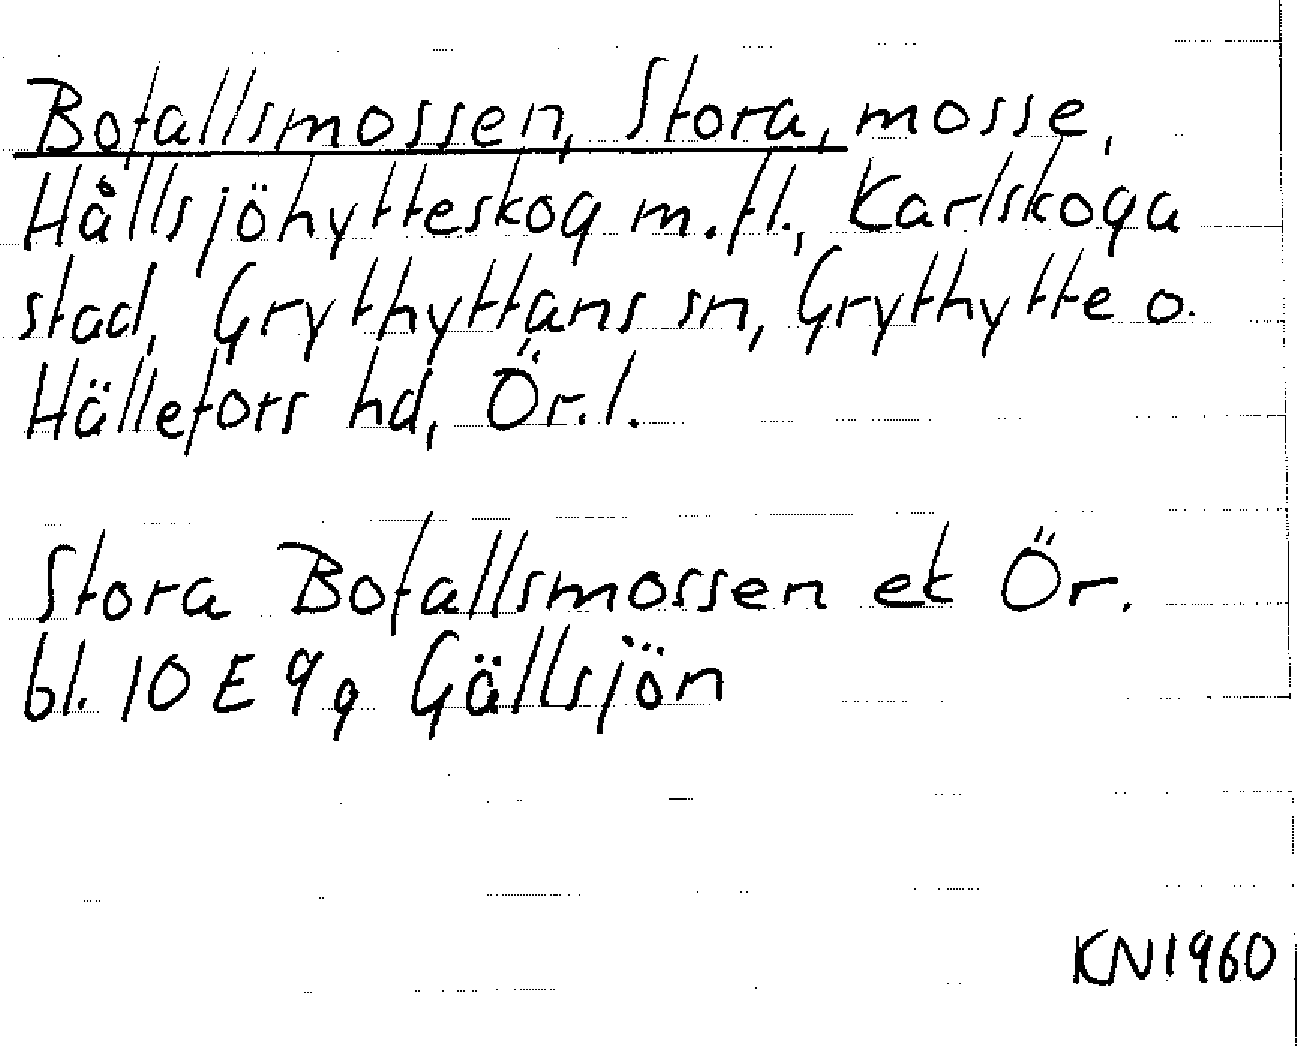 Bofallsmossen, Stora, mosse,
Hållsjöhytteskog m.fl., Karlskoga
stad, Grythyttans sn, Grythytte o.
Hällefors hd, Ör.l.
Stora Bofallsmossen ek Ör.
bl. 10 E 9g Gällsjön
KN1960